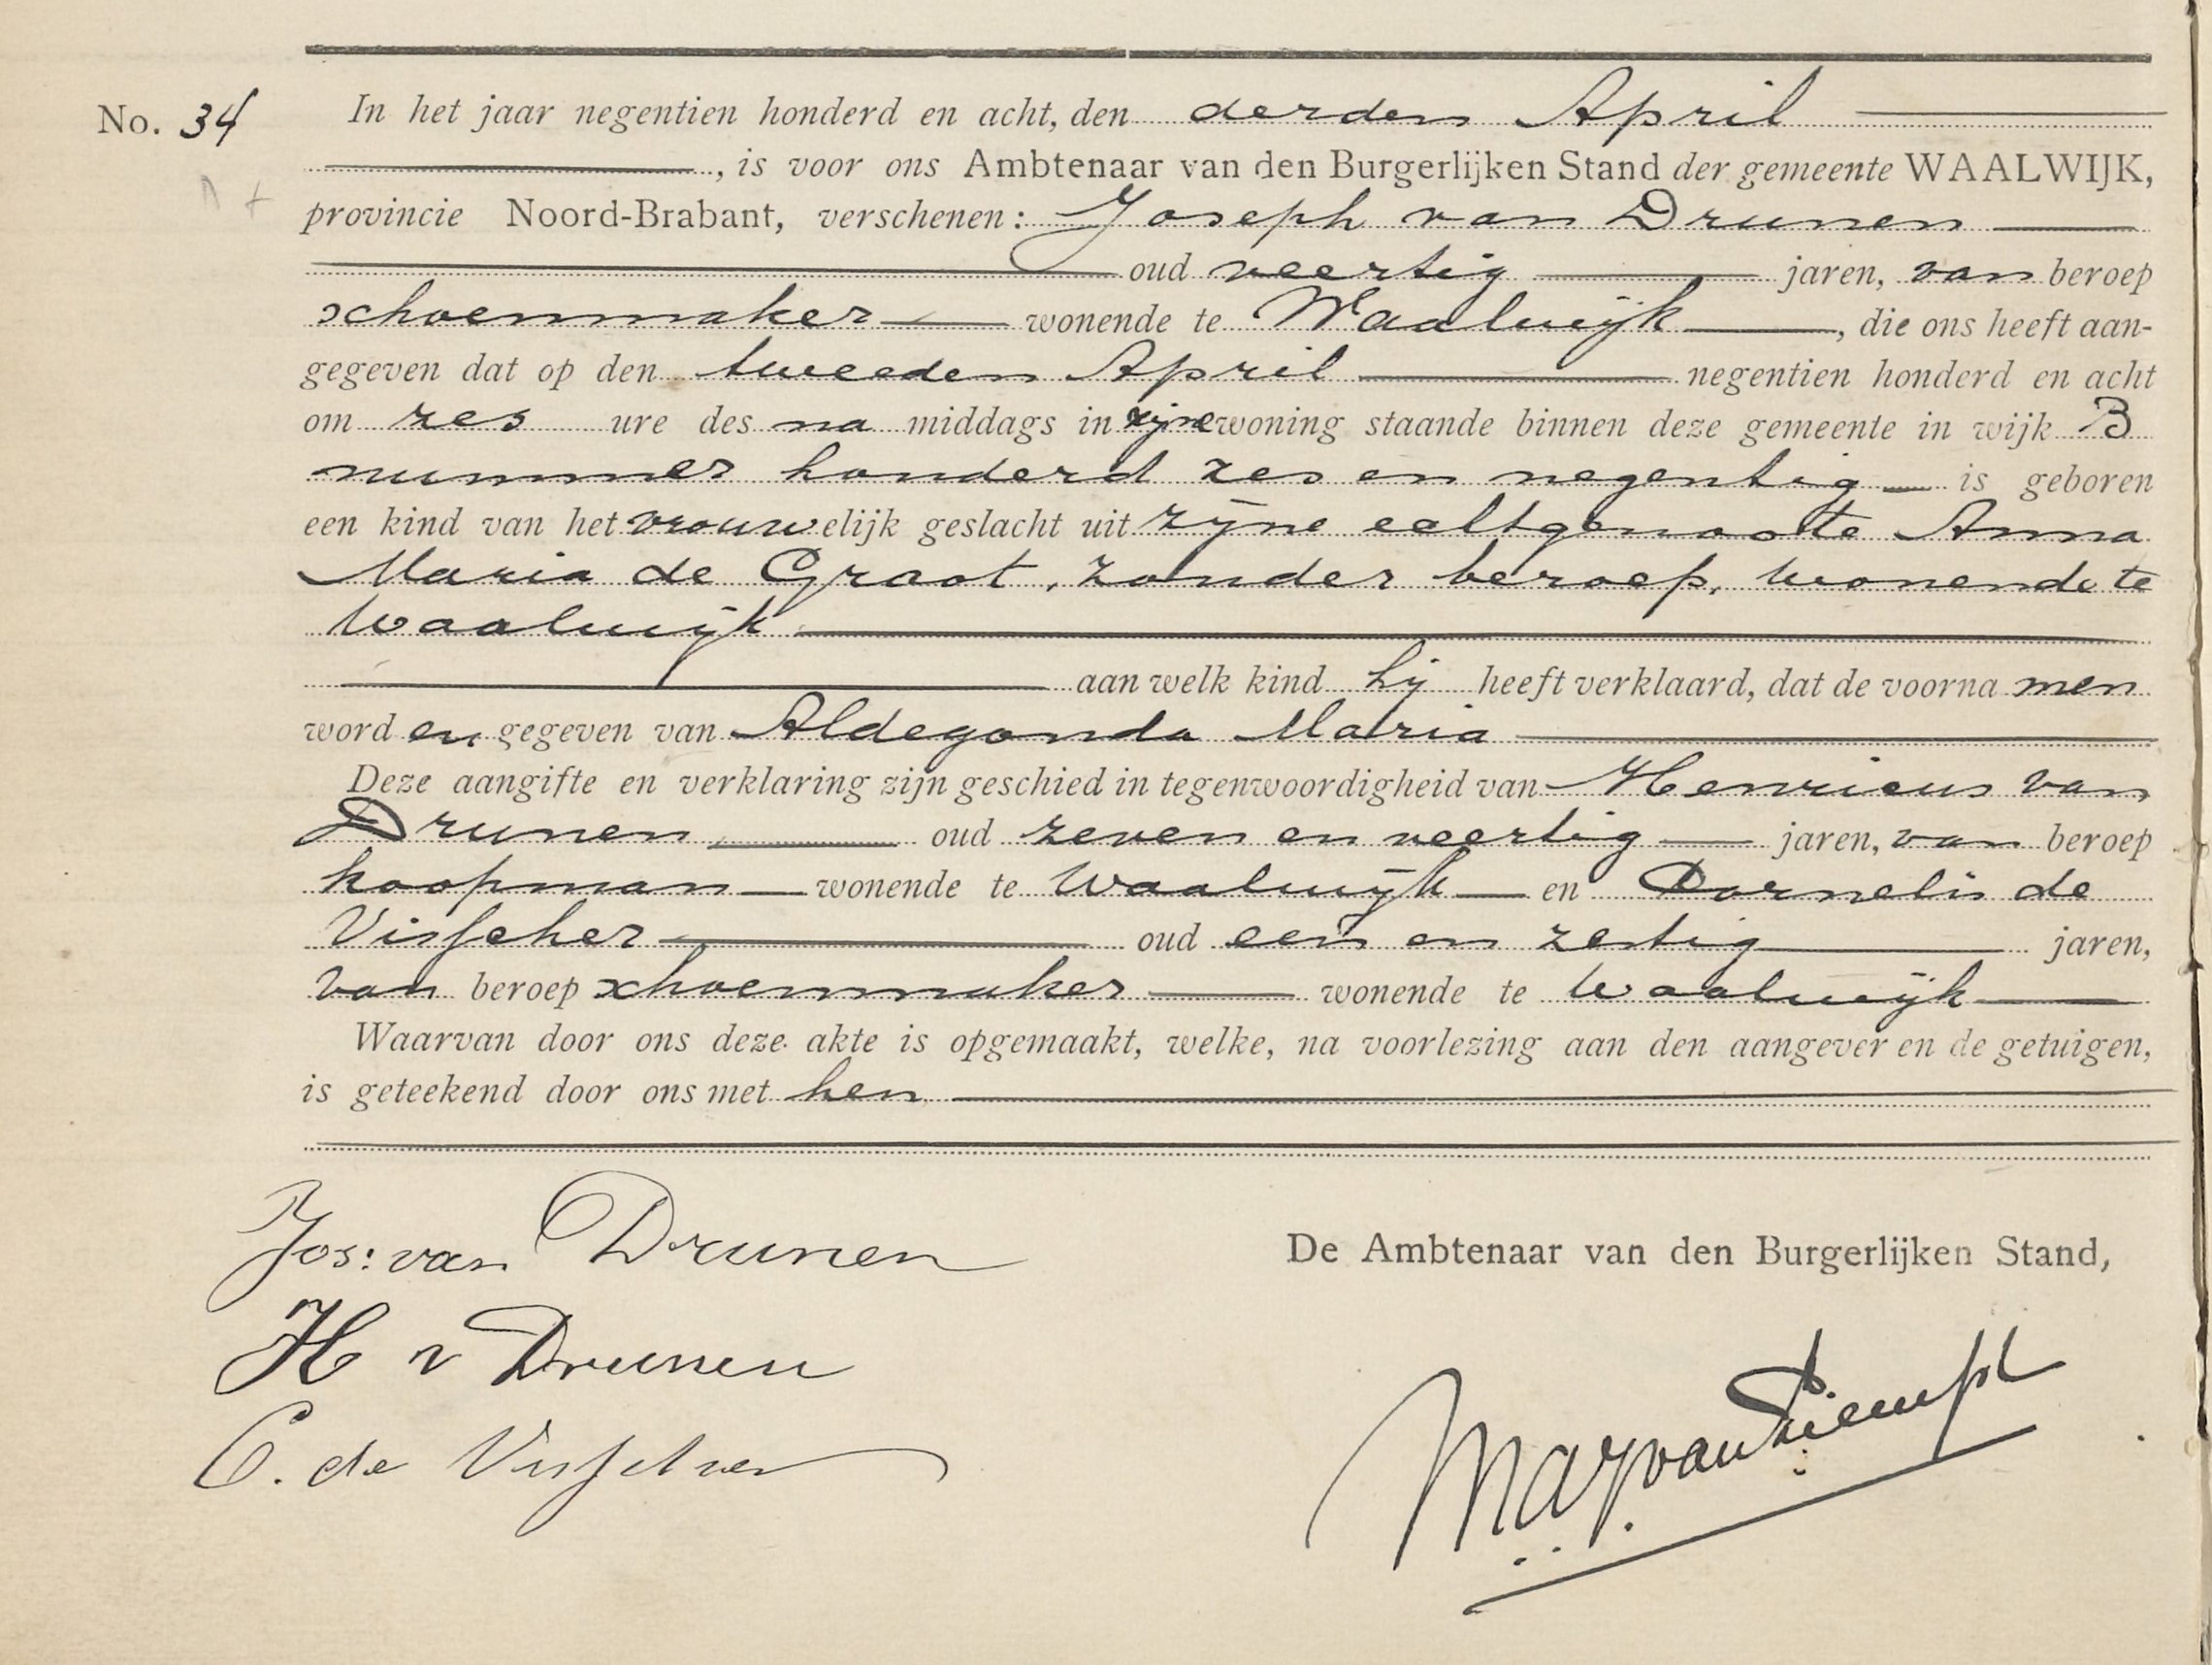 No. 34 In het jaar negentien honderd en acht, den derden April
, is voor ons Ambtenaar van den Burgerlijken Stand der gemeente WAALWIJK,
provincie Noord-Brabant, verschenen: Joseph van Drunen
oud veertig jaren, van beroep
schoenmaker wonende te Waalwijk, die ons heeft aan-
gegeven dat op den tweeden April negentien honderd en acht
om zes ure des na middags in zijne woning staande binnen deze gemeente in wijk B
nummer honderd zes en negentig is geboren
een kind van het vrouwelijk geslacht uit zijne echtgenoote Anna
Maria de Groot, zonder beroep, wonende te
Waalwijk
aan welk kind hij heeft verklaard, dat de voornamen
worden gegeven van Aldegonda Maria
Deze aangifte en verklaring zijn geschied in tegenwoordigheid van Henricus van
Drunen oud zeven en veertig jaren, van beroep
koopman wonende te Waalwijk en Cornelis de
Visscher oud een en zestig jaren,
van beroep schoenmaker wonende te Waalwijk
Waarvan door ons deze akte is opgemaakt, welke, na voorlezing aan den aangever en de getuigen,
is geteekend door ons met hen
Jos: van Drunen
De Ambtenaar van den Burgerlijken Stand,
H v Drunen
C. de Visscher